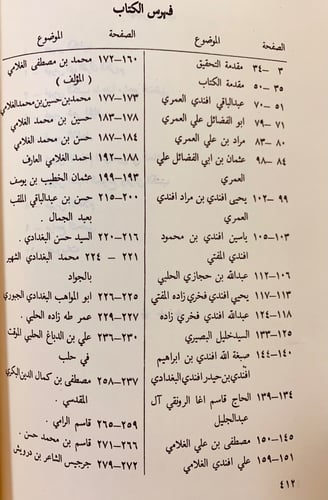 فهرس الكتاب
الموضوع الصفحة
مقدمة التحقيق ٣ —٣٤
مقدمة الكتاب ٣٥ —٥٠
عبدالباقي افندي العمري ٥١ —٧٠
ابو الفضائل علي العمري ٧١ —٧٩
مراد بن علي العمري ٨٠ —٨٣
عثمان بن ابي الفضائل علي ٨٤ —٩٨
العمري
يحيى افندي بن مراد افندي ٩٩ —١٠٢
العمري
ياسين افندي بن محمود ١٠٣—١٠٥
افندي المفتي
عبدالله بن حجازي الحلبي ١٠٦—١١٢
يحيى افندي فخري زاده المفتي ١١٣—١١٧
عبدالله افندي فخري زاده ١١٨—١٢٤
السيد خليل البصيري ١٢٥—١٣٣
صبغة الله افندي بن ابراهيم ١٤٠—١٤٤
افندي بن حيدر افندي البغدادي
الحاج قاسم اغا الرونقي آل ١٣٤—١٣٩
عبدالجليل
مصطفى بن علي الغلامي ١٤٥—١٥٠
علي افندي الغلامي ١٥١—١٥٩
الموضوع الصفحة
محمد بن مصطفى الغلامي ١٦٠—١٧٢
( المؤلف )
محمد بن حسين بن محمد الغلامي ١٧٣—١٧٧
حسين بن محمد الغلامي ١٧٨—١٨٣
حسن بن محمد الغلامي ١٨٤—١٨٧
احمد الغلامي العارف ١٨٨—١٩٢
عثمان الخطيب بن يوسف ١٩٣—١٩٩
حسن بن عبدالباقي الملقب ٢٠٠—٢١٥
بعبد الجمال .
السيد حسن البغدادي . ٢١٦—٢٢٠
محمد البغدادي الشهير ٢٢١ — ٢٢٤
بالجواد
ابو المواهب البغدادي الجبوري ٢٢٥—٢٢٦
عمر طه زاده الحلبي . ٢٢٧—٢٢٩
علي بن الدباغ الحلبي الميقت ٢٣٠—٢٣٦
في حلب
مصطفى بن كمال الدين البكري ٢٣٧—٢٥٨
المقدسي .
قاسم الرامي . ٢٥٩—٢٦٥
قاسم بن محمد حسن . ٢٦٦—٢٧١
جرجيس الشاعر بن درويش ٢٧٢—٢٧٩
٤١٢